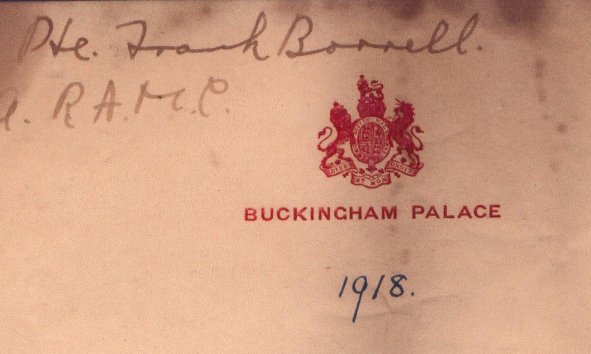 Pte. Frank Borrell.
R.A.M.C.
BUCKINGHAM PALACE
1918.